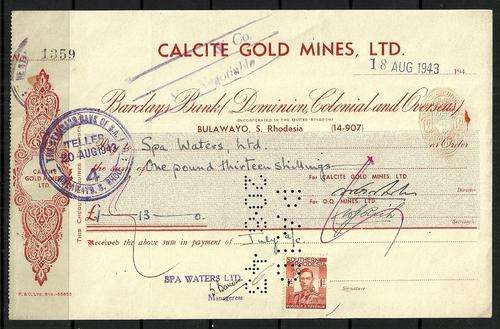 No. 1359
CALCITE GOLD MINES, LTD.
& Co.
Negotiable
18 AUG 1943 194
Barclays Bank (Dominion, Colonial and Overseas)
(INCORPORATED IN THE UNITED KINGDOM)
BULAWAYO, S. Rhodesia (14-907)
THE STANDARD BANK OF S.A. LTD.
TELLER
20 AUG 1943
4
BULAWAYO, S. RHOD.
Spa Waters, Ltd. or Order
the Sum of One pound thirteen shillings
CALCITE GOLD MINES LTD.
For CALCITE GOLD MINES, LTD.
Director
For O.Q. MINES, LTD.
Secretaries
£1-13-0.
Received the above sum in payment of July a/c
SPA WATERS LTD.
Manageress
SOUTHERN RHODESIA
POSTAGE & REVENUE
Signature